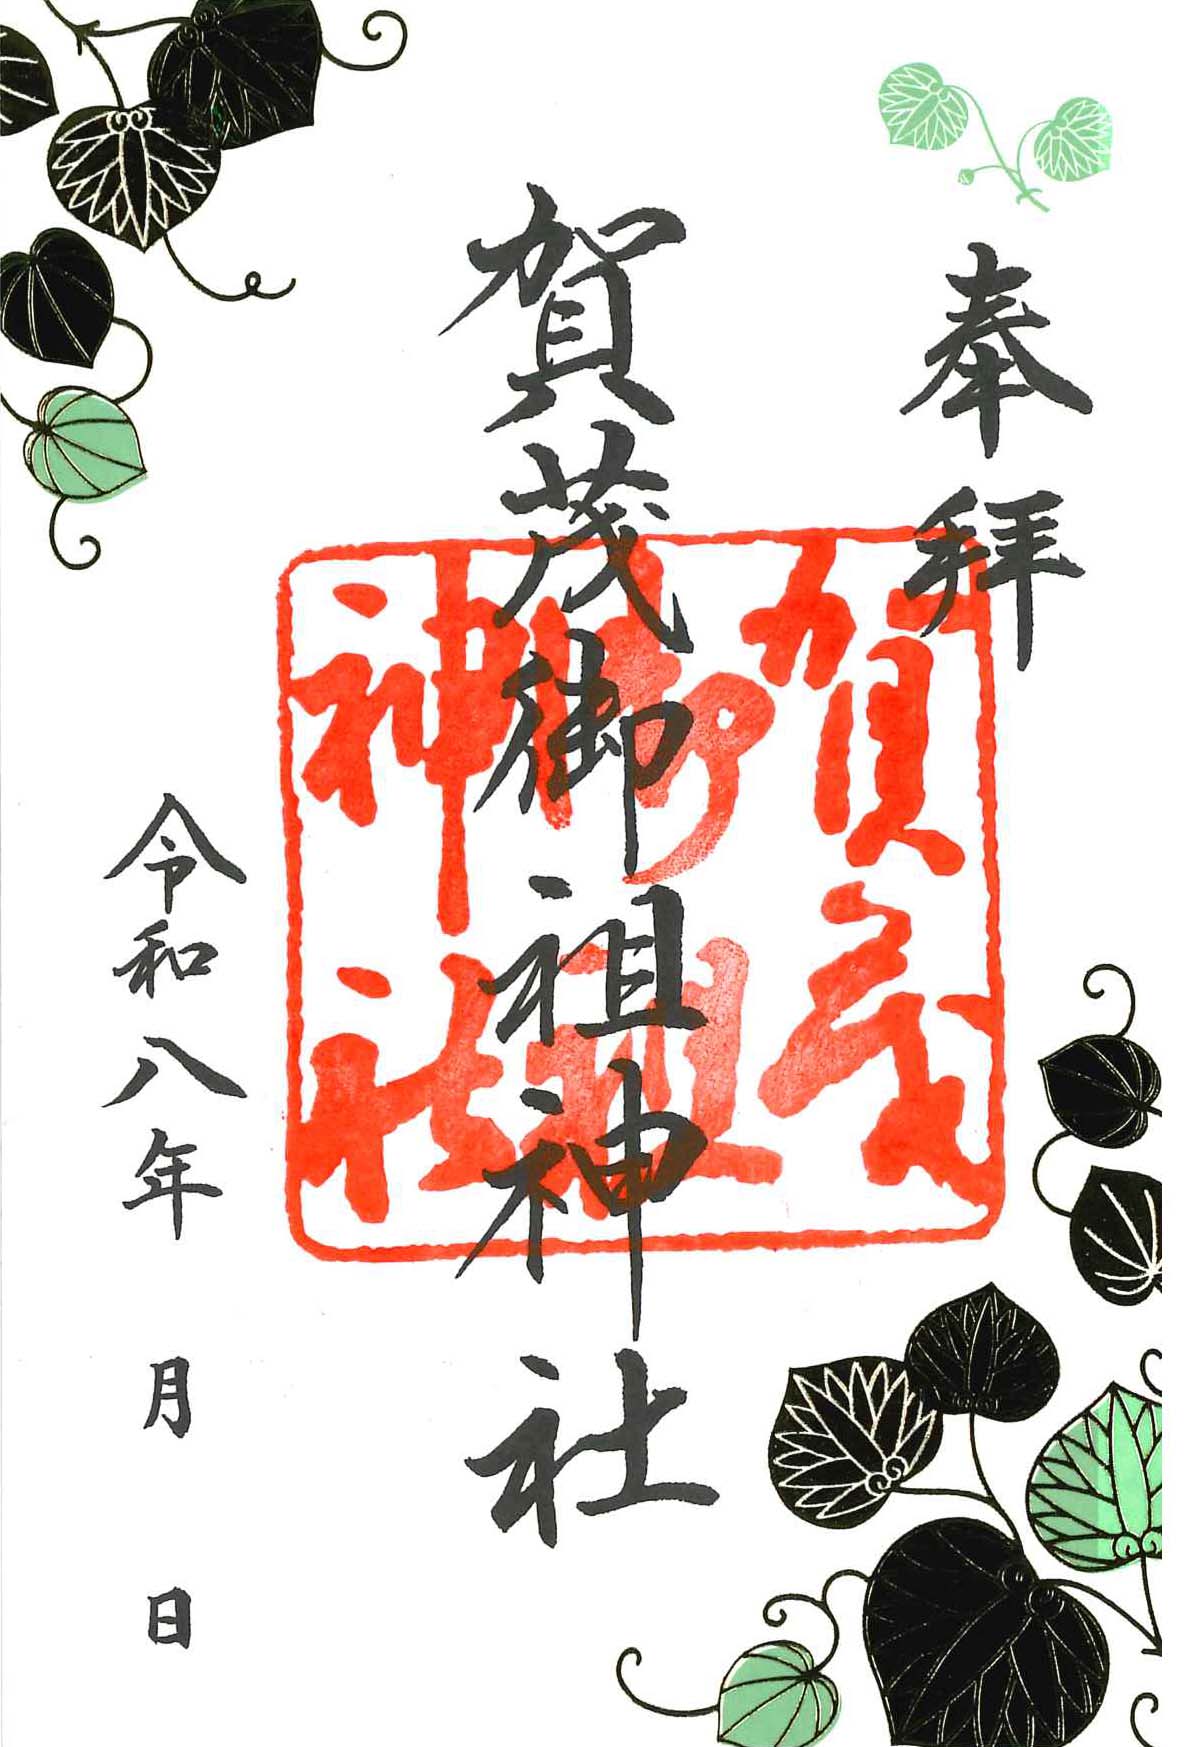 奉拝
賀茂御祖神社
賀茂
御祖
神社
令和八年 月 日